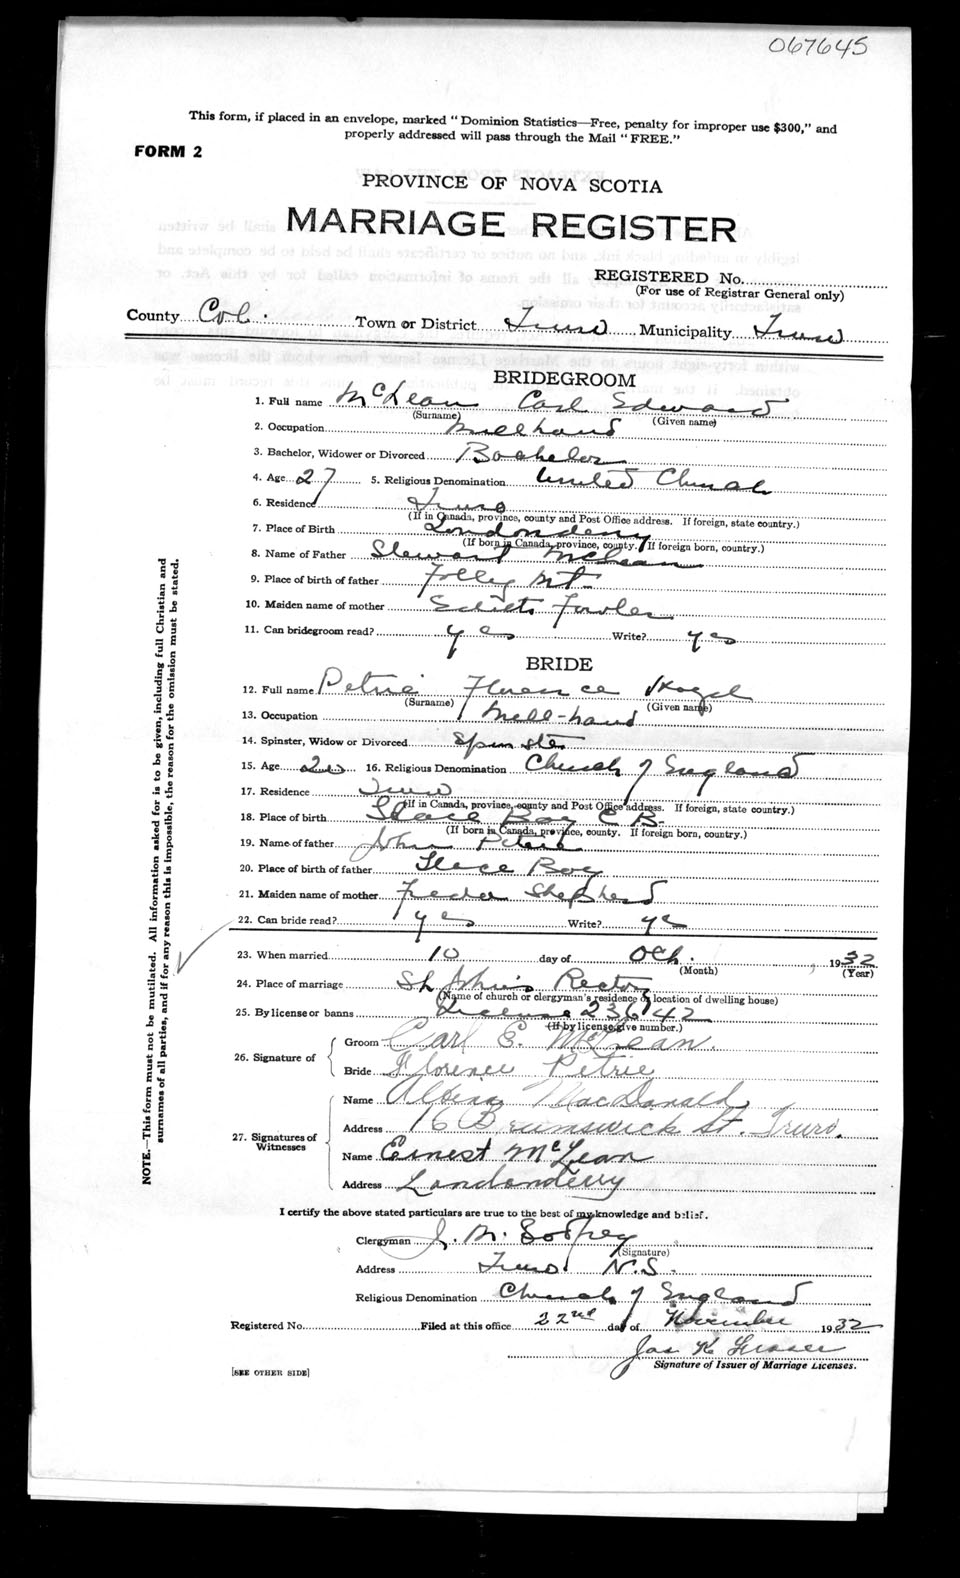 067645
This form, if placed in an envelope, marked "Dominion Statistics—Free, penalty for improper use $300," and
properly addressed will pass through the Mail "FREE."
FORM 2
PROVINCE OF NOVA SCOTIA
MARRIAGE REGISTER
REGISTERED No.
(For use of Registrar General only)
County Col. Town or District Truro Municipality Truro
BRIDEGROOM
1. Full name McLean Carl Edward
(Surname) (Given name)
2. Occupation Millhand
3. Bachelor, Widower or Divorced Bachelor
4. Age 27 5. Religious Denomination United Church
6. Residence Truro
(If in Canada, province, county and Post Office address. If foreign, state country.)
7. Place of Birth Londonderry
(If born in Canada, province, county. If foreign born, country.)
8. Name of Father Stewart McLean
9. Place of birth of father Folley Mt
10. Maiden name of mother Fowler
11. Can bridegroom read? yes Write? yes
BRIDE
12. Full name Petrie Florence
(Surname) (Given name)
13. Occupation Mill-hand
14. Spinster, Widow or Divorced Spinster
15. Age 16. Religious Denomination Church of England
17. Residence Truro
(If in Canada, province, county and Post Office address. If foreign, state country.)
18. Place of birth Glace Bay C B.
(If born in Canada, province, county. If foreign born, country.)
19. Name of father John Petrie
20. Place of birth of father Glace Bay
21. Maiden name of mother Freda Shepherd
22. Can bride read? yes Write? yes
23. When married 10 day of Oct. 1932
(Month) (Year)
24. Place of marriage St John's Rectory
(Name of church or clergyman's residence or location of dwelling house)
25. By license or banns License 236142
(If by license, give number.)
26. Signature of
Groom Carl E. McLean.
Bride Florence Petrie
27. Signatures of Witnesses
Name MacDonald
Address 16 Brunswick St. Truro.
Name Ernest McLean
Address Londonderry
I certify the above stated particulars are true to the best of my knowledge and belief.
Clergyman J. M. Godfrey
(Signature)
Address Truro N.S.
Religious Denomination Church of England
Registered No. Filed at this office 22nd day of November 1932
Jas K Fraser
Signature of Issuer of Marriage Licenses.
[SEE OTHER SIDE]
NOTE.—This form must not be mutilated. All information asked for is to be given, including full Christian and
surnames of all parties, and if for any reason this is impossible, the reason for the omission must be stated.